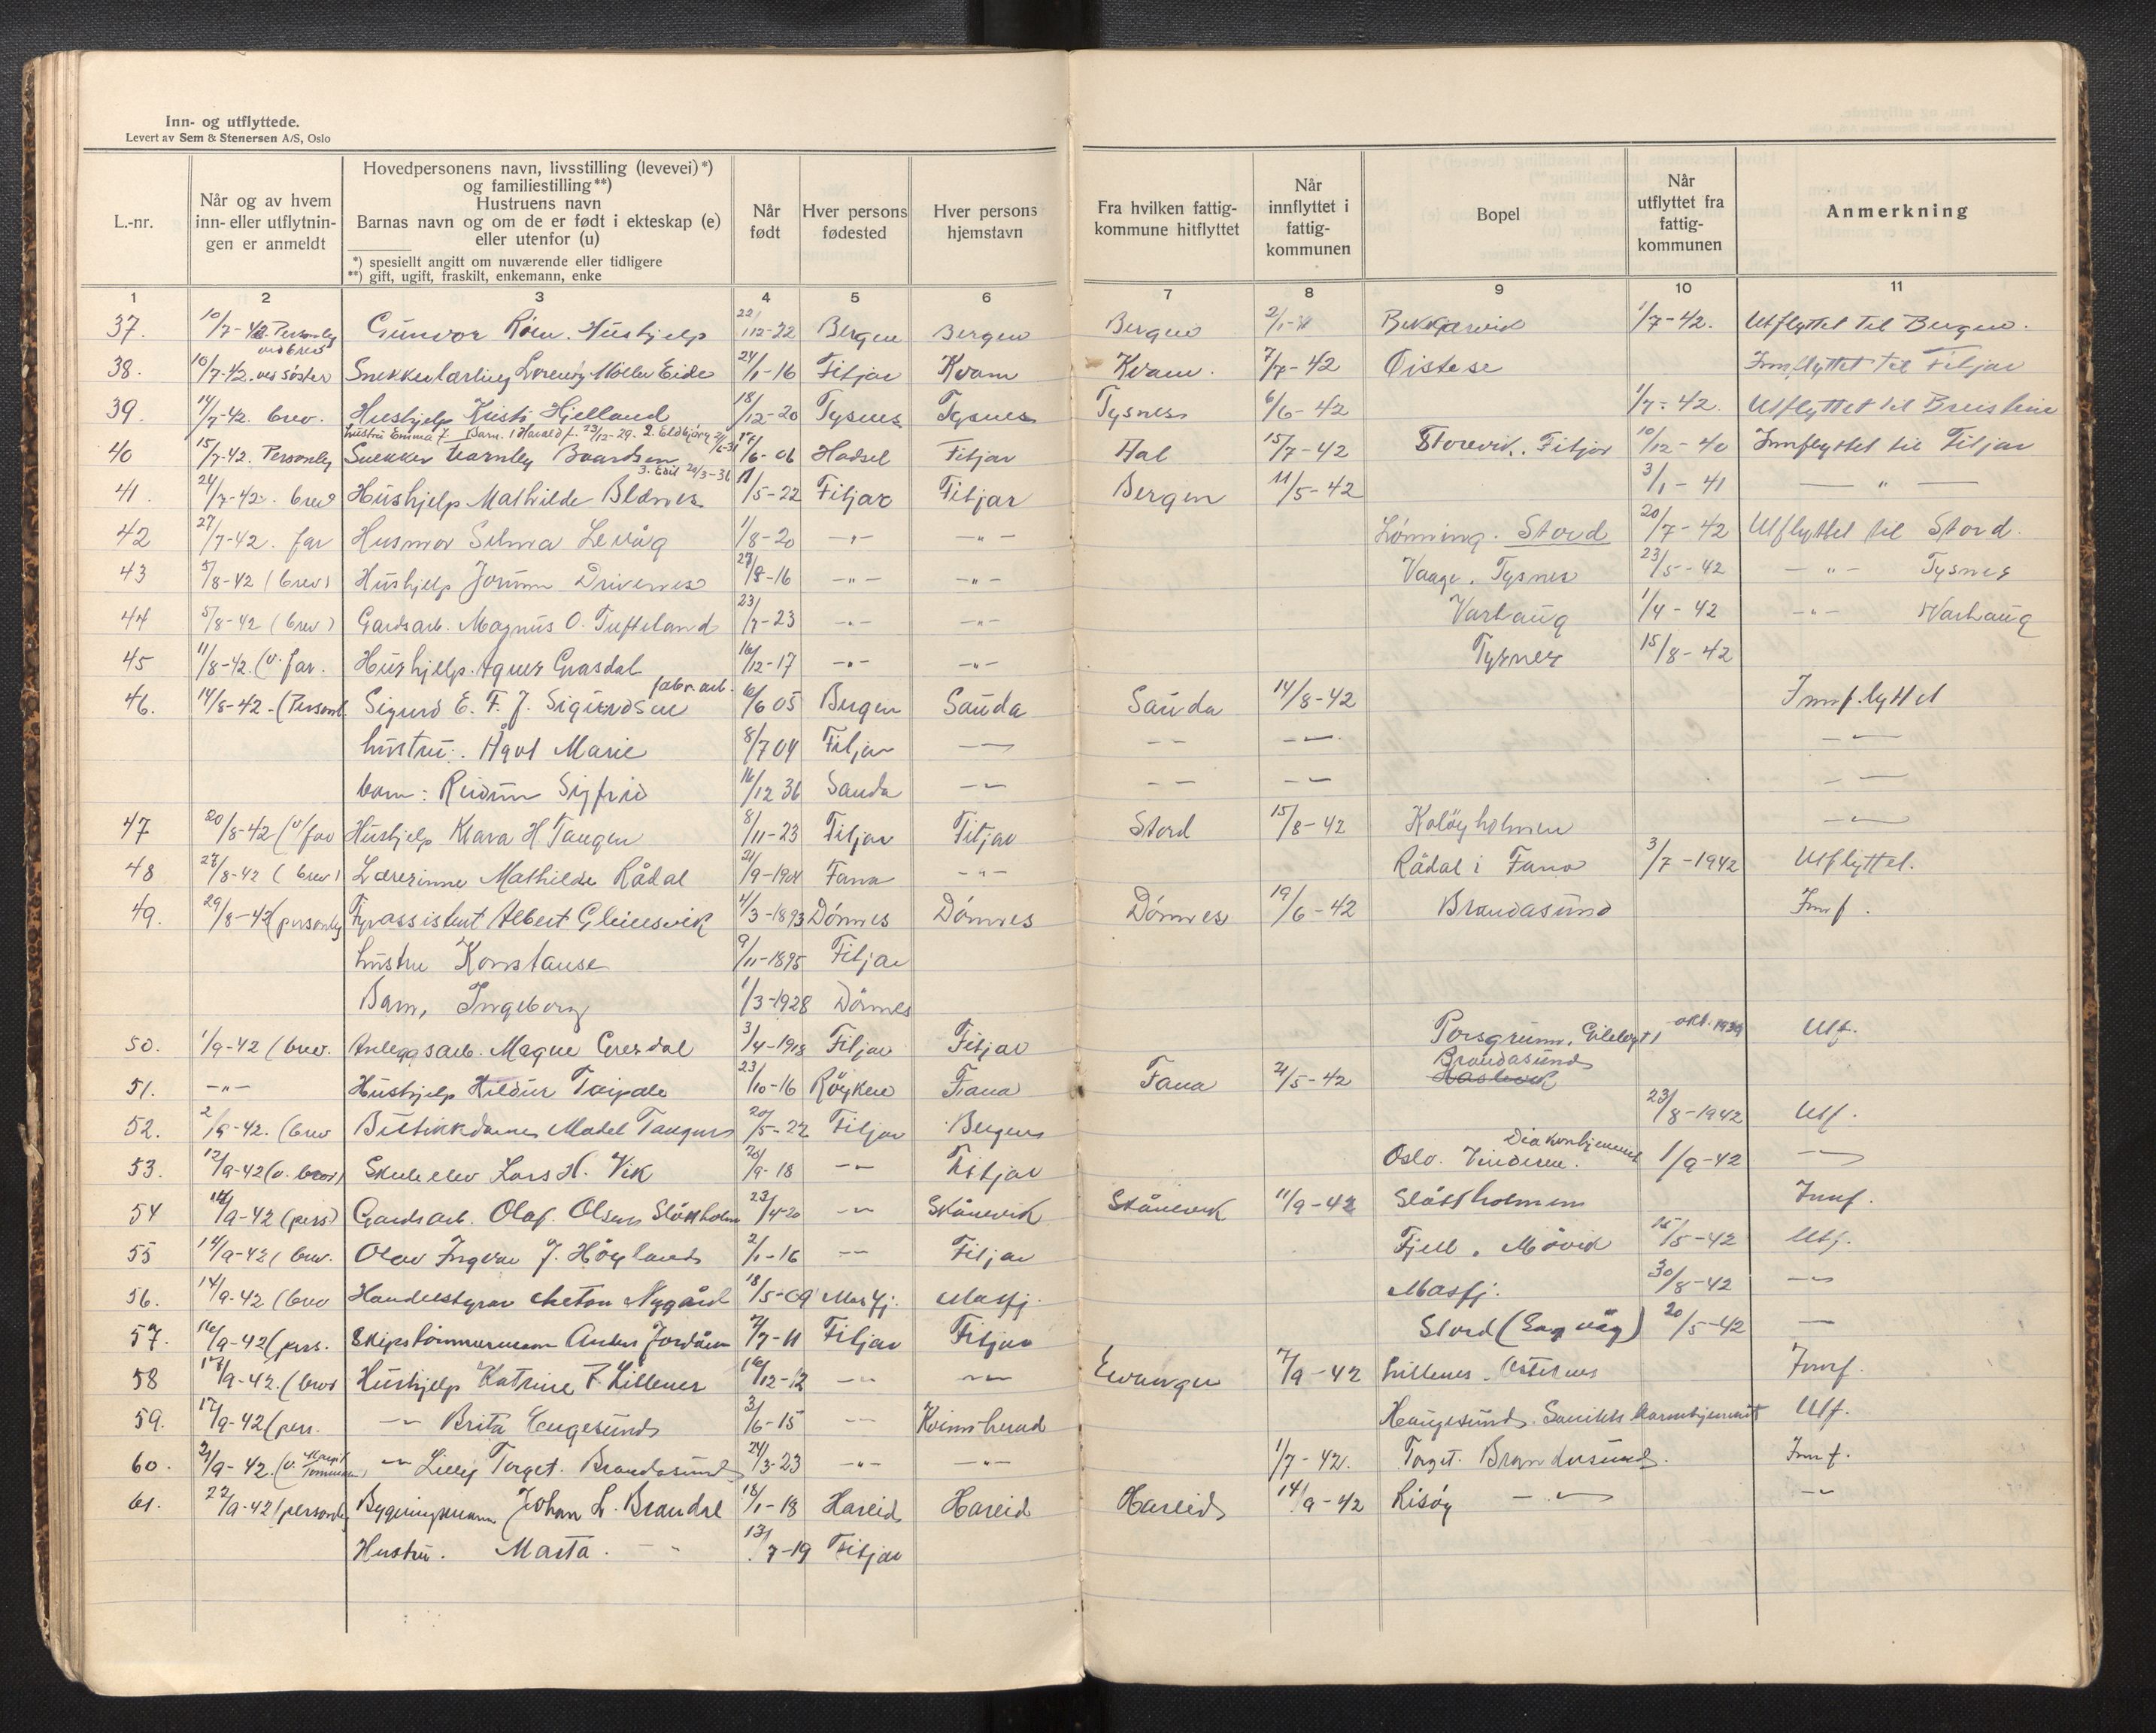 Inn- og utflyttede.
Levert av Sem & Stenersen A/S, Oslo
L.-nr.
Når og av hvem inn- eller utflytnin- gen er anmeldt
Hovedpersonens navn, livsstilling (levevei)*)
og familiestilling**)
Hustruens navn
Barnas navn og om de er født i ekteskap (e)
eller utenfor (u)
*) spesiellt angitt om nuværende eller tidligere
**) gift, ugift, fraskilt, enkemann, enke
Når født
Hver persons fødested
Hver persons hjemstavn
Fra hvilken fattig- kommune hitflyttet
Når innflyttet i fattig- kommunen
Bopel
Når utflyttet fra fattig- kommunen
Anmerkning
1 2 3 4 5 6 7 8 9 10 11
37. 10/7-42. Personly ved brev Gunvor Hushjelp 22/12-22 Bergen Bergen Bergen 1/7-42. Utflyttet til Bergen.
38. 10/7-42. ved søster Snekkerlærling Eide 24/1-16 Fitjar Kvam Kvam. 7/7-42 Øistese Innflyttet til Fitjar
39. 14/7-42. brev. Hushjelp Kristi Hjelland 18/12-20 Tysnes Tysnes Tysnes 6/6-42 1/7-42. Utflyttet til
hustru Emma f. Barn. 1 Harald f. 23/12-29. 2. Eldbjørg
40 15/7-42. Personly Snekker Baardsen 17/6-06 Hadsel Fitjar Hal 15/7-42 Storevik. Fitjar 10/12-40 Innflyttet til Fitjar
3. Edil 20/3-36
41. 24/7-42. brev Hushjelp Mathilde 11/5-22 Fitjar Fitjar Bergen 11/5-42 3/1-41 — " —
42 27/7-42. far Husmor Selma Levåg 1/8-20 -"- -"- Lønning. Stord 20/7-42 Utflyttet til Stord.
43 5/8-42 (brev) Hushjelp Jorunn Drivenes 27/8-16 -"- -"- Vaage. Tysnes 23/5-42 -"- Tysnes
44 5/8-42 (brev) Gardsarb. Magnus O. Tufteland 23/7-23 -"- -"- Varhaug 1/4-42 -"- Varhaug
45 11/8-42. (v. far. Hushjelp. Agnes Grasdal 16/12-17 -"- -"- Tysnes 15/8-42
46. 14/8-42-(Personl Sigurd E. F. J. Sigurdsen fabr. arb. 6/6 05 Bergen Sauda Sauda 14/8-42 Innflyttet
hustru: Ågot Marie 8/7 04 Fitjar -"- -"- -"- -"-
barn: Reidun Sigfrid 16/12 36 Sauda -"- -"- -"- -"-
47 20/8-42 (v/far Hushjelp Klara H Tangen 8/11-23 Fitjar Fitjar Stord 15/8-42 Koløyholmen -"-
48 27/8-42 (brev) Lærerinne Mathilde Rådal 21/9-1904 Fana -"- Rådal i Fana 3/7-1942 Utflyttet.
49. 29/8-42 (personly Fyrassistent Albert Gleinsvik 4/3-1893 Dönnes Dönnes Dönnes 19/6-42 Brandasund Innf.
hustru Konstanse 9/11-1895 Fitjar
Barn, Ingeborg 1/3-1928 Dönnes
50. 1/9-42 (brev. Anleggsarb. Magne Gresdal 3/4-1918 Fitjar Fitjar Porsgrunn. okt. 1939 Utf.
51. -"- Hushjelp Hildur Taipale 23/10-16 Röyken Fana Fana 21/5-42 Brandasund
52. 2/9-42. (brev Butikkdame Madel Tangen 20/5-22 Fitjar Bergen 23/8-1942 Utf.
53. 12/9-42 (v. brev) Skuleelev Lars H. Vik 20/9-18 -"- Fitjar Oslo. Vinderen. Diakonhjemmet 1/9-42 -"-
54 14/9-42 (pers) Gardsarb. Olaf. Olsen Slåttholm 23/4-20 -"- Skånevik Skånevik 11/9-42 Slåttholmen Innf.
55 14/9-42 (brev. Olav Ingvar J. Høyland 2/1-16 -"- Fitjar Fjell. Møvik 15/5-42 Utf.
56. 14/9-42 (brev Handelstyrar Anton Nygård 18/5-09 Masfj. Masfj. Masfj. 30/8-42 -"-
57. 16/9-42 (pers. Skipstømmermann Anders Jordåen 21/7-11 Fitjar Fitjar Stord (Sagvåg) 20/5-42 —
58 17/9-42. (brev Hushjelp Katrine P. Lillenes 16/12-12 -"- -"- Evanger 7/9-42 Lillenes. Østernes Innf.
59. 17/9-42 (pers. -"- Brita Engesund 3/6-15 -"- Kvinnherad Haugesund. Sanitets Barnehjemmet Utf.
60. 21/9-42. (v. Margit Tommesen) -"- Lilly Torget. Brandasund 24/3-23 -"- -"- 1/7-42. Torget. Brandasund. Innf.
61. 22/9-42 (personly Bygningsmann Johan L. Brandal 18/1-18 Hareid Hareid Hareid 14/9-42 Risøy -"- -"-
Hustru. Marta. -"- 13/7-19 Fitjar